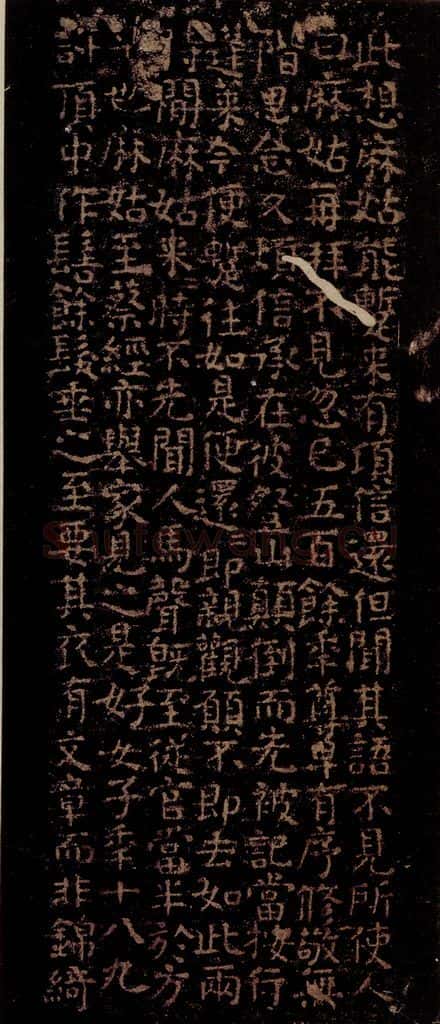 此想麻姑能蹔来有頃信還但聞其語不見所使人
曰麻姑再拜不見忽已五百餘年尊卑有序修敬無
階思念又煩信承在彼登山顛倒而先被記當按行
蓬萊今便蹔往如是便還即親觀願不即去如此兩
時聞麻姑来時不先聞人馬聲既至從官當半於方
平也麻姑至蔡經亦舉家見之是好女子年十八九
許頂中作髻餘髮垂之至要其衣有文章而非錦綺